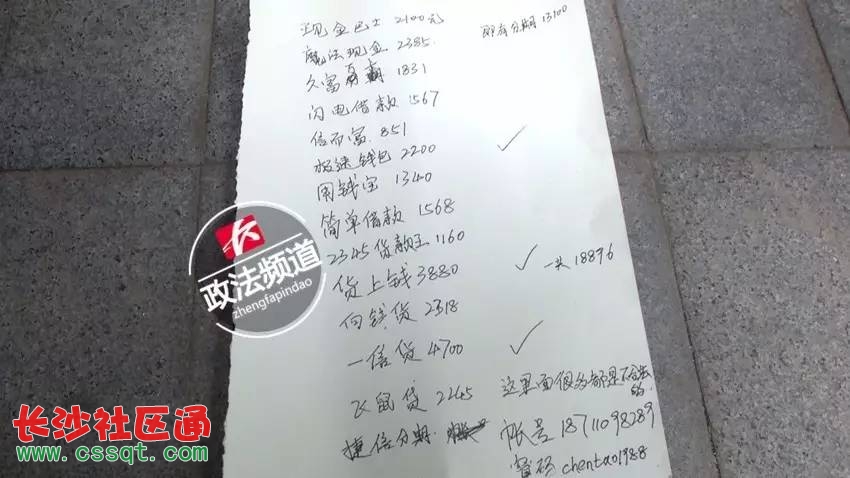 现金巴士 2100元
即有分期 13100
魔法现金 2385
久富 1831
闪电借款 1567
信而富 851
极速钱包 2200 ✓
用钱宝 1340
简单借款 1568
2345贷款王 1160
贷上钱 3880 ✓ 一共 18896
向钱贷 2318
一信贷 4700 ✓
飞鼠贷 2245
这里面很多都是不合法的.
捷信分期
帐号 18711098289
密码 chentao1988
政法频道
zhengfapindao
长沙社区通
www.cssqt.com